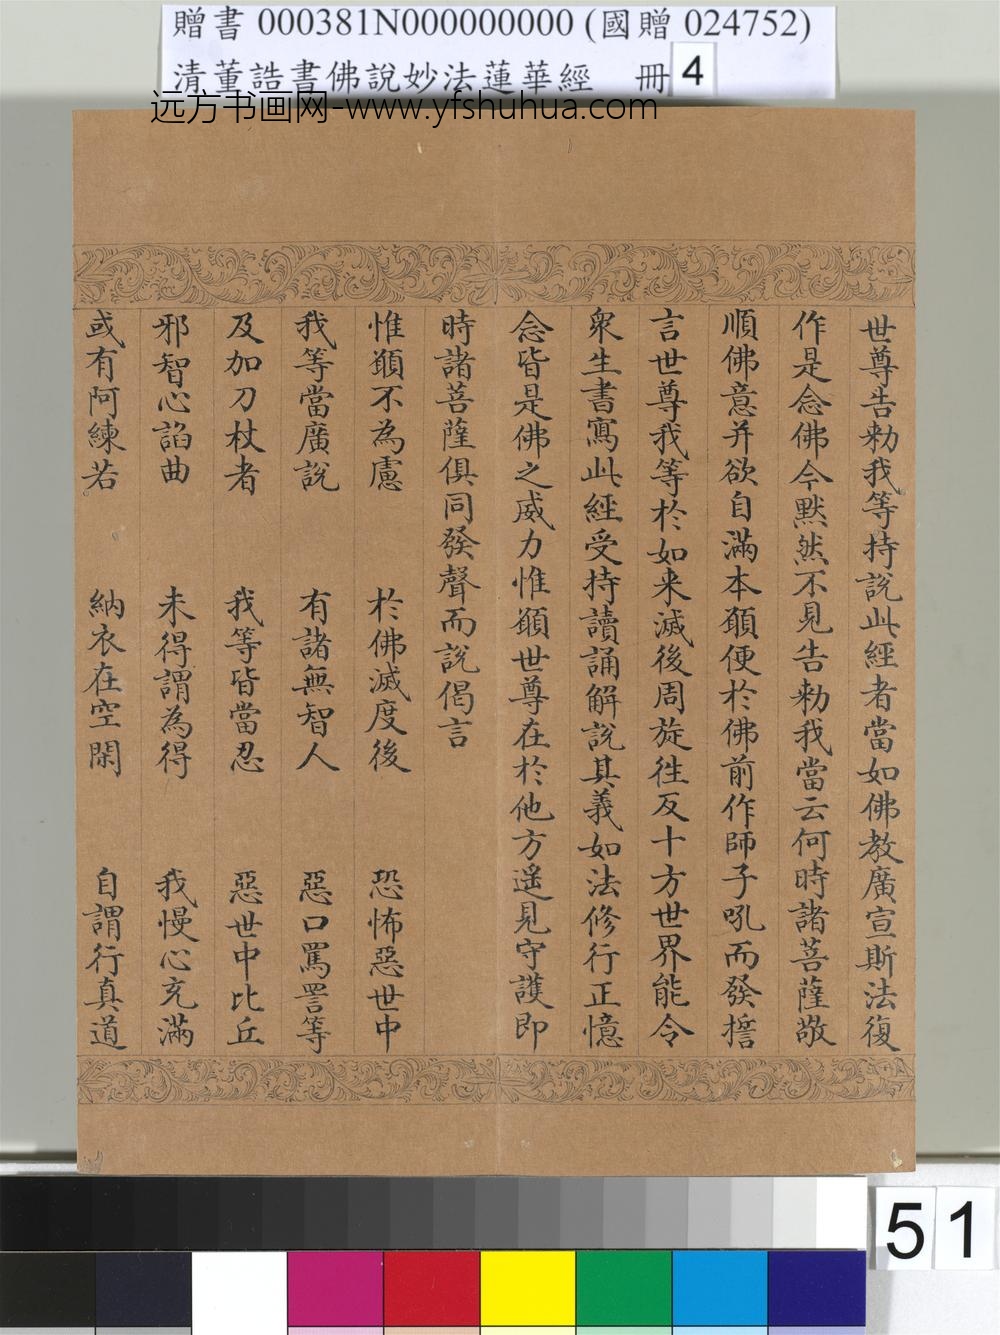 贈書 000381N000000000 (國贈 024752)
清董誥書佛說妙法蓮華經 冊 4
远方书画网-www.yfshuhua.com
世尊告勑我等持說此經者當如佛教廣宣斯法復
作是念佛今默然不見告勑我當云何時諸菩薩敬
順佛意并欲自滿本願便於佛前作師子吼而發誓
言世尊我等於如来滅後周旋徃反十方世界能令
衆生書寫此經受持讀誦解說其義如法修行正憶
念皆是佛之威力惟願世尊在於他方遥見守護即
時諸菩薩俱同發聲而說偈言
惟願不為慮 於佛滅度後 恐怖惡世中
我等當廣說 有諸無智人 惡口罵詈等
及加刀杖者 我等皆當忍 惡世中比丘
邪智心諂曲 未得謂為得 我慢心充滿
或有阿練若 納衣在空閑 自謂行真道
51